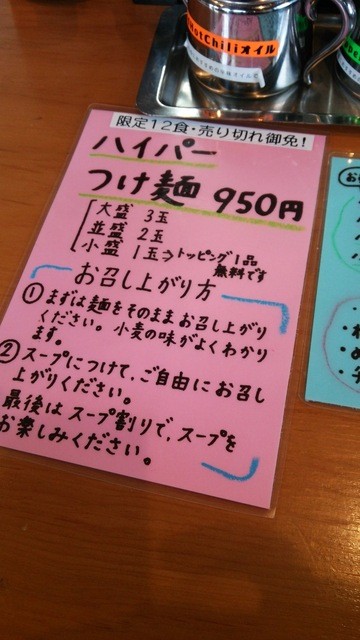 HotChiliオイル
限定12食・売り切れ御免!
ハイパー
つけ麺 950円
大盛 3玉
並盛 2玉
小盛 1玉⇒トッピング1品
無料です
お召し上がり方
① まずは麺をそのままお召し上がり
ください。小麦の味がよくわかり
ます。
② スープにつけて、ご自由にお召し
上がりください。
最後はスープ割りで、スープを
お楽しみください。